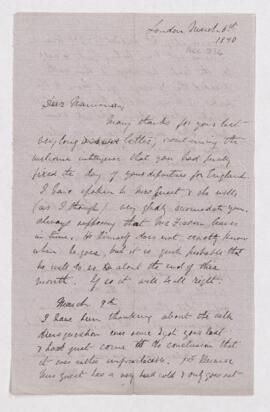 London March 6th
1890
Dear Mamma,
Many thanks for your last
very long letter, containing the
welcome intelligence that you had finally
fixed the day of your departure for England.
I have spoken to Mrs Guest & she will,
(as I thought) very gladly accomodate you,
always supposing that Mr leaves
in time. He himself does not exactly know
when he goes, but it is quite probable that
he will do so about the end of this
month. If so it will be all right.
March 9th
I have been thinking about the
question ever since I got your last
& have just come to the conclusion that
it was rather impracticable. 1st Because
Mrs Guest has a very bad cold & only goes out